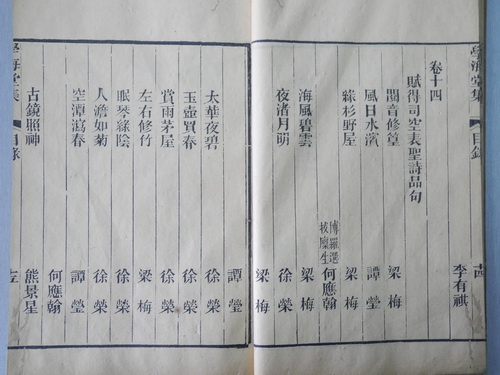 學海堂集
目錄
李有祺
卷十四
賦得司空表聖詩品句
閱音修篁 梁梅
風日水濱 譚瑩
綠杉野屋 梁梅
博羅選拔廩生 何應翰
海風碧雲
夜渚月明 徐榮
梁梅
譚瑩
太華夜碧 徐榮
玉壺買春 徐榮
賞雨茅屋 徐榮
左右修竹 梁梅
眠琴綠陰 徐榮
人澹如菊 徐榮
空潭瀉春 譚瑩
何應翰
古鏡照神 熊景星
學海堂集
目錄